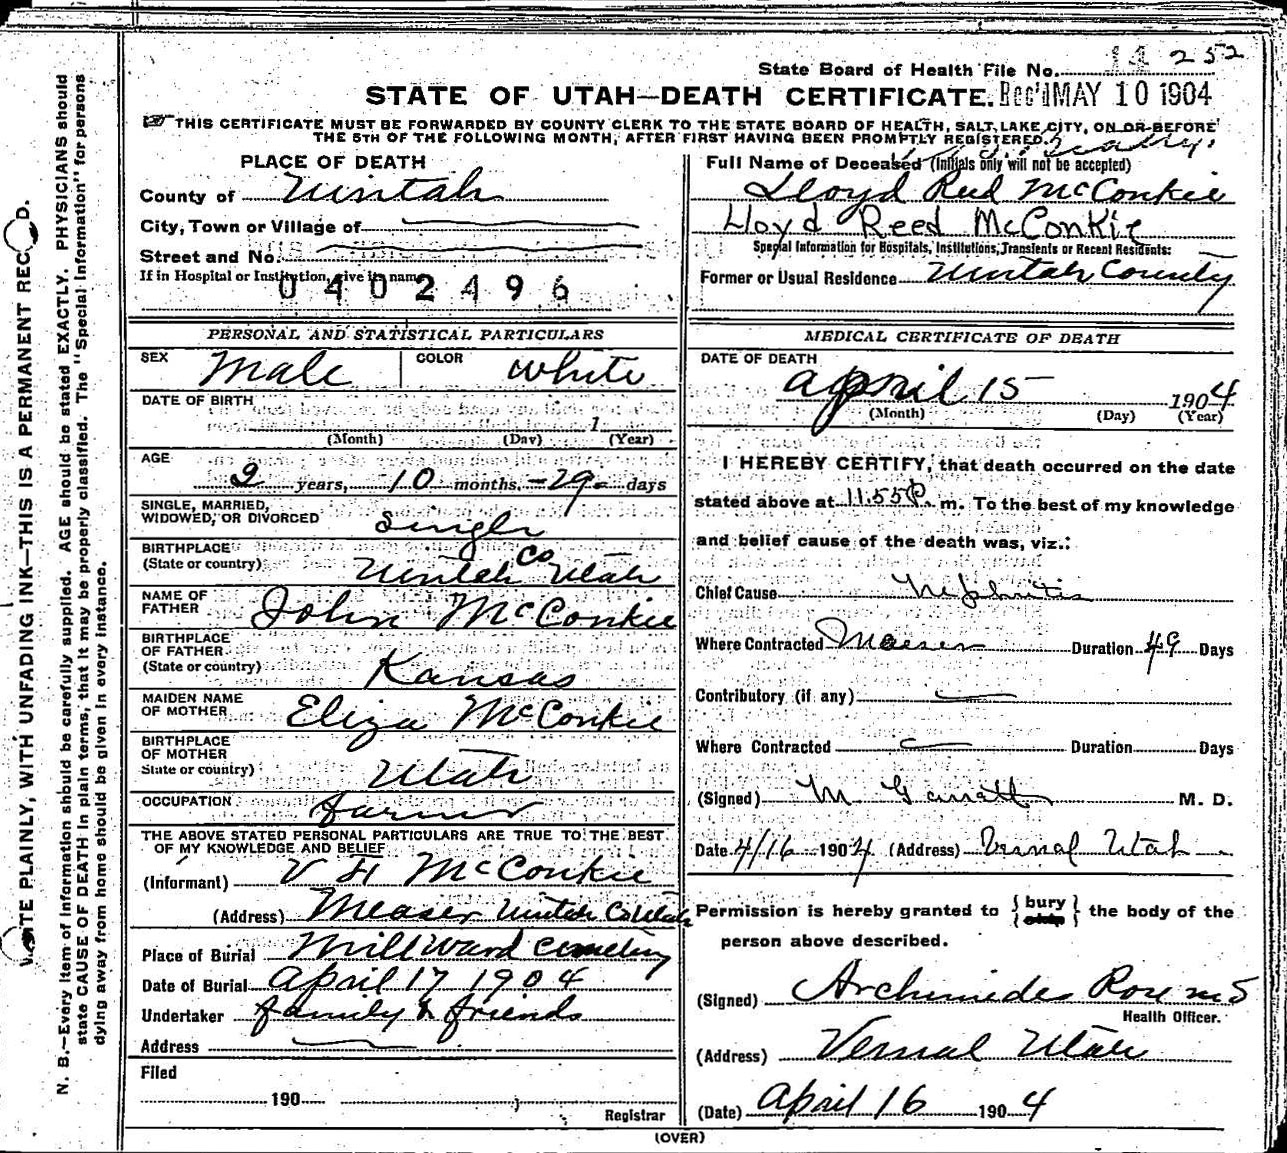 State Board of Health File No. 14 252
STATE OF UTAH—DEATH CERTIFICATE. Rec'd MAY 10 1904
THIS CERTIFICATE MUST BE FORWARDED BY COUNTY CLERK TO THE STATE BOARD OF HEALTH, SALT LAKE CITY, ON OR BEFORE
THE 5TH OF THE FOLLOWING MONTH, AFTER FIRST HAVING BEEN PROMPTLY REGISTERED.
PLACE OF DEATH
County of Uintah
City, Town or Village of
Street and No.
If in Hospital or Institution, give its name
0402496
Full Name of Deceased (Initials only will not be accepted)
Lloyd Reed McConkie
Lloyd Reed McConkie
Special Information for Hospitals, Institutions, Transients or Recent Residents:
Former or Usual Residence Uintah County
PERSONAL AND STATISTICAL PARTICULARS
SEX Male COLOR White
DATE OF BIRTH
1
(Month) (Day) (Year)
AGE
2 years, 10 months, 29 days
SINGLE, MARRIED,
WIDOWED, OR DIVORCED Single
BIRTHPLACE
(State or country) Uintah Co Utah
NAME OF
FATHER John McConkie
BIRTHPLACE
OF FATHER
(State or country) Kansas
MAIDEN NAME
OF MOTHER Eliza McConkie
BIRTHPLACE
OF MOTHER
State or country) Utah
OCCUPATION farmer
THE ABOVE STATED PERSONAL PARTICULARS ARE TRUE TO THE BEST
OF MY KNOWLEDGE AND BELIEF
(Informant) McConkie
(Address) Measer Uintah Co Utah
Place of Burial Mill Ward Cemetery
Date of Burial April 17 1904
Undertaker family & friends
Address
Filed
190
Registrar
MEDICAL CERTIFICATE OF DEATH
DATE OF DEATH
April 15 1904
(Month) (Day) (Year)
I HEREBY CERTIFY, that death occurred on the date
stated above at 11.55 P. m. To the best of my knowledge
and belief cause of the death was, viz.:
Chief Cause Nephritis
Where Contracted Maeser Duration 49 Days
Contributory (if any)
Where Contracted Duration Days
(Signed) M. D.
Date 4/16 1904 (Address) Vernal Utah
Permission is hereby granted to { bury } the body of the
person above described.
(Signed) Archimedes Rose M D
Health Officer.
(Address) Vernal Utah
(Date) April 16 1904
(OVER)
PLAINLY, WITH UNFADING INK—THIS IS A PERMANENT
N. B.—Every item of information should be carefully supplied. AGE should be stated EXACTLY. PHYSICIANS should
state CAUSE OF DEATH in plain terms, that it may be properly classified. The "Special Information" for persons
dying away from home should be given in every instance.